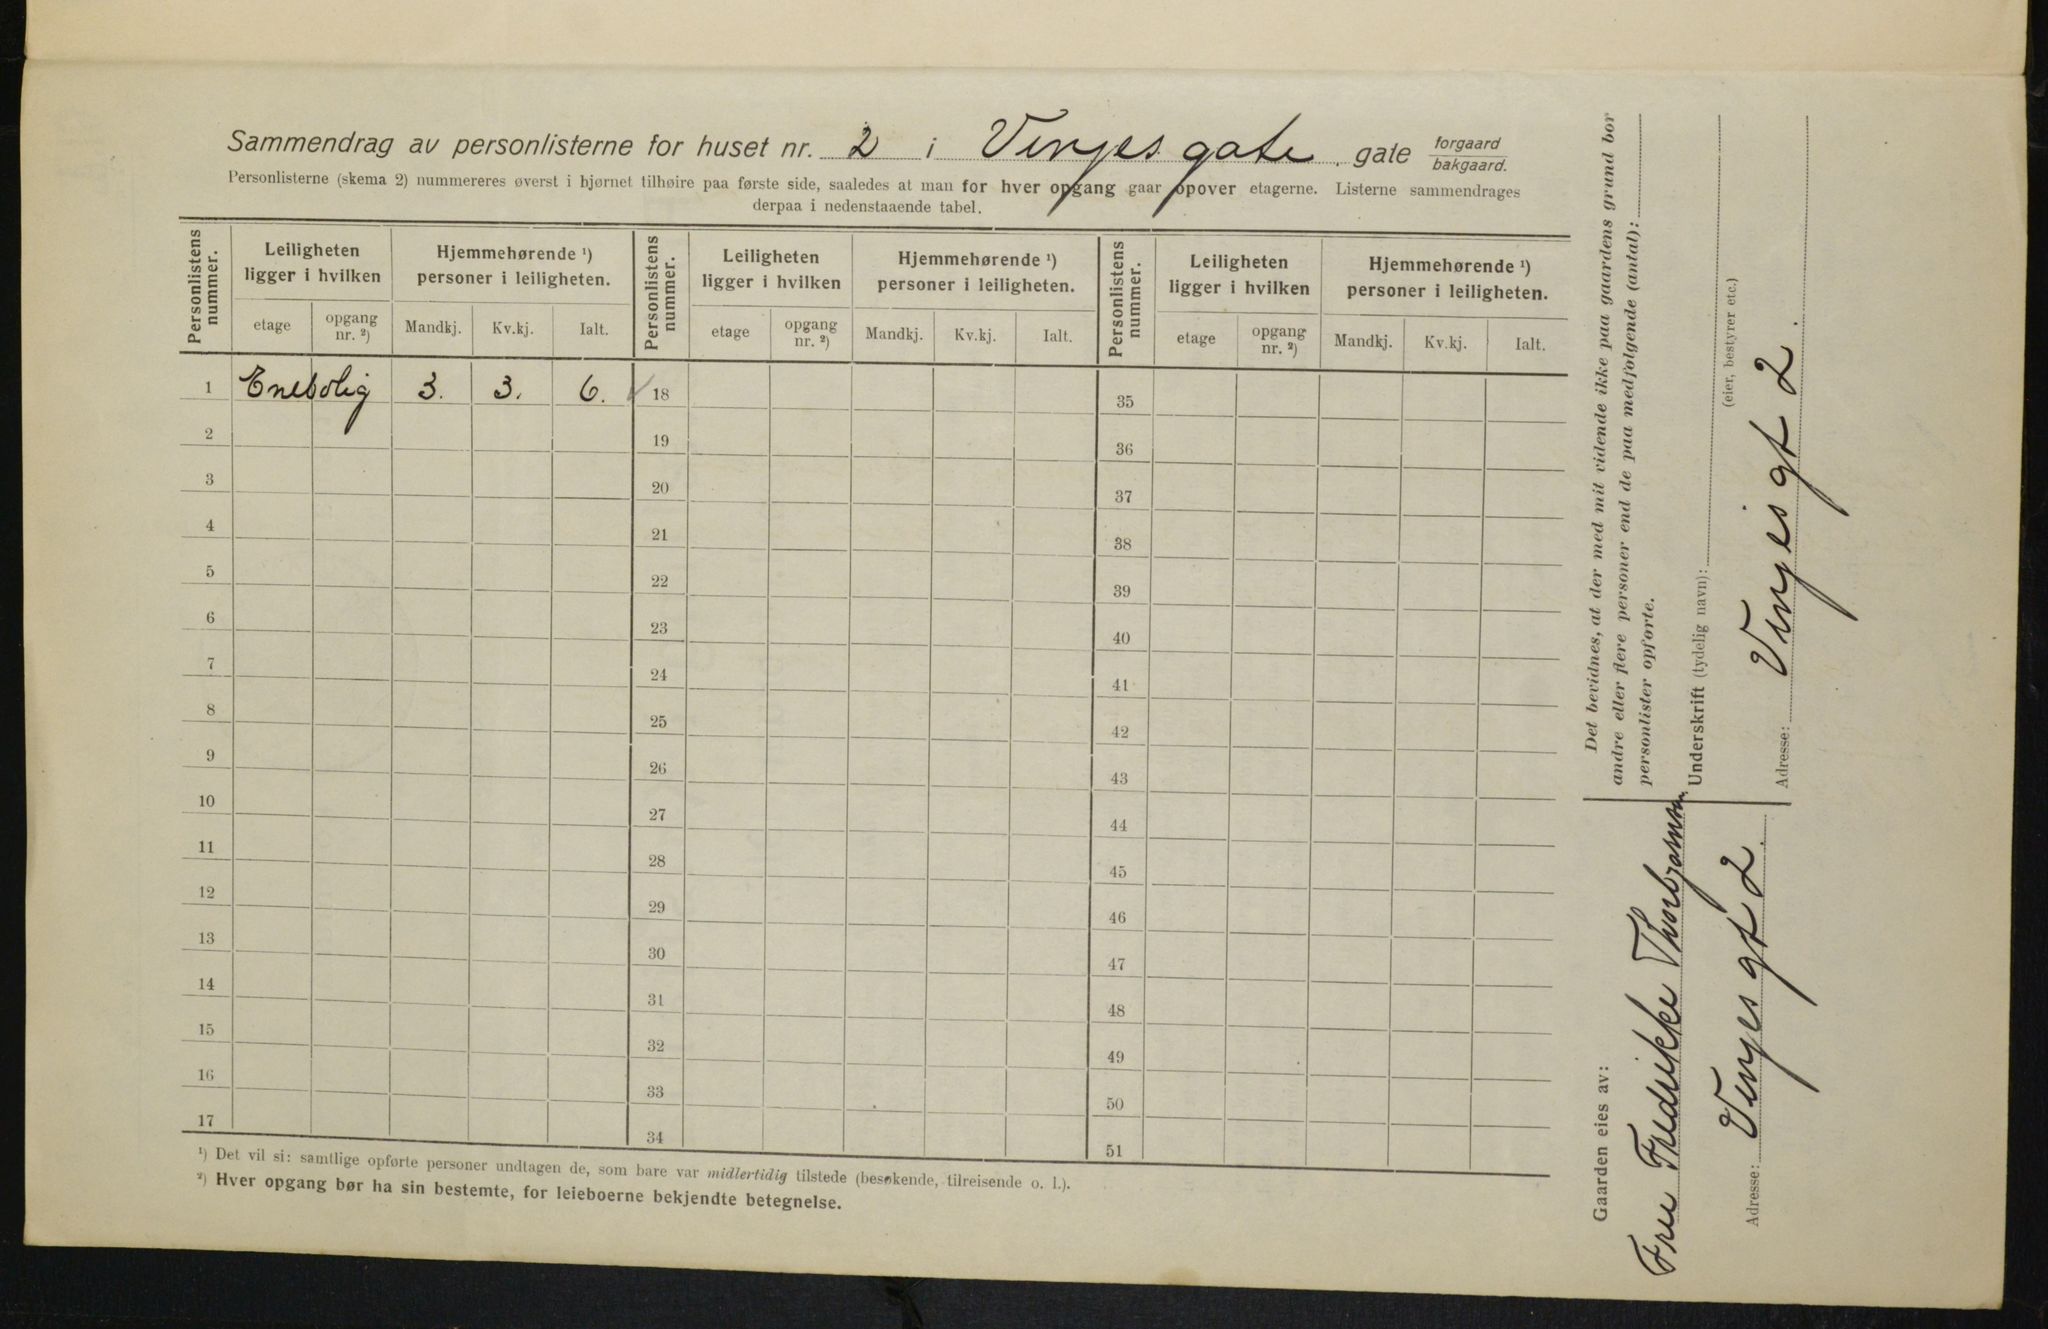 Sammendrag av personlisterne for huset nr. 2 i Vinjes gate gate forgaard bakgaard.
Personlisterne (skema 2) nummereres øverst i hjørnet tilhøire paa første side, saaledes at man for hver opgang gaar opover etagerne. Listerne sammendrages
derpaa i nedenstaaende tabel.
Personlistens nummer. Leiligheten ligger i hvilken Hjemmehørende ¹) personer i leiligheten. Personlistens nummer. Leiligheten ligger i hvilken Hjemmehørende ¹) personer i leiligheten. Personlistens nummer. Leiligheten ligger i hvilken Hjemmehørende ¹) personer i leiligheten.
etage opgang nr. ²) Mandkj. Kv.kj. Ialt. etage opgang nr. ²) Mandkj. Kv.kj. Ialt. etage opgang nr. ²) Mandkj. Kv.kj. Ialt.
1 Enebolig 3. 3. 6. 18 35
2 19 36
3 20 37
4 21 38
5 22 39
6 23 40
7 24 41
8 25 42
9 26 43
10 27 44
11 28 45
12 29 46
13 30 47
14 31 48
15 32 49
16 33 50
17 34 51
¹) Det vil si: samtlige opførte personer undtagen de, som bare var midlertidig tilstede (besøkende, tilreisende o. l.).
²) Hver opgang bør ha sin bestemte, for leieboerne bekjendte betegnelse.
Det bevidnes, at der med mit vidende ikke paa gaardens grund bor
andre eller flere personer end de paa medfølgende (antal):
personlister opførte.
Underskrift (tydelig navn): (eier, bestyrer etc.)
Adresse: Vinjes gt 2.
Gaarden eies av:
Fru Fredrikke Thorbjørnsen
Adresse: Vinjes gt 2.